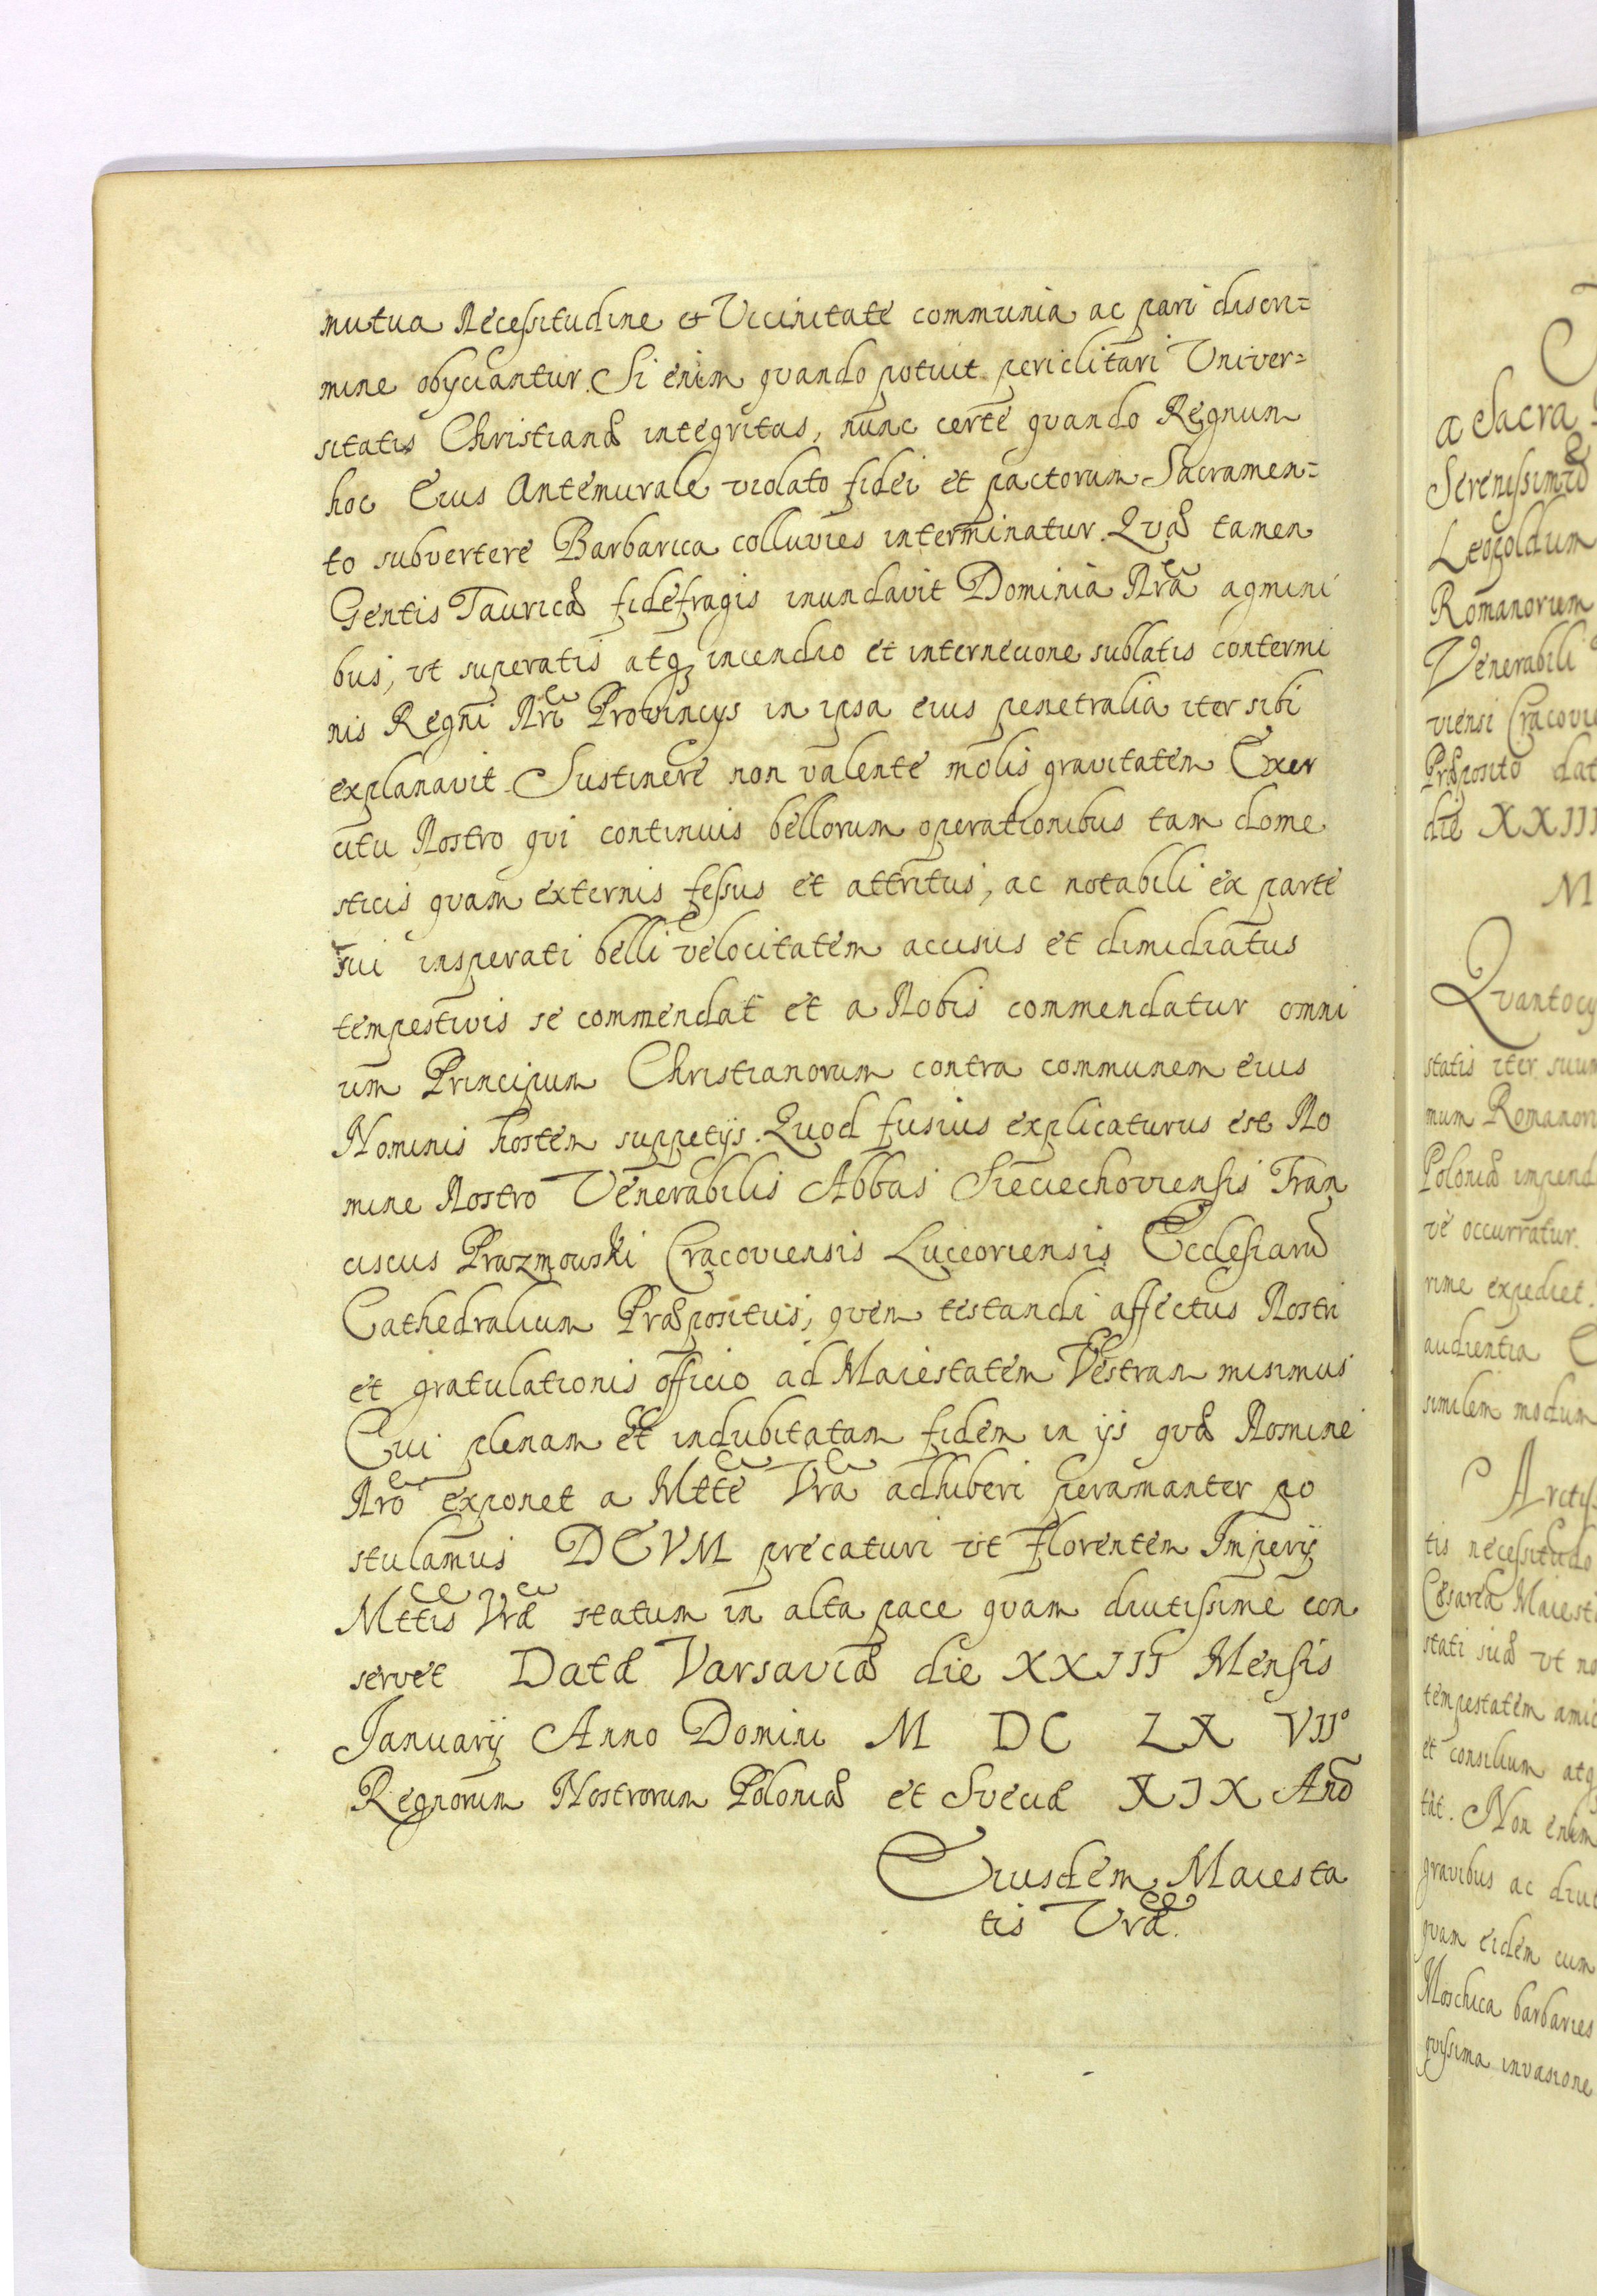 mutua Necessitudine et Vicinitate communia ac pari discri=
mine obijciantur. Si enim quando potuit periclitari Univer=
sitatis Christianæ integritas, nunc certe quando Regnum
hoc Eius Antemurale violato fidei et pactorum Sacramen=
to subvertere Barbarica colluvies interminatur. Quæ tamen
Gentis Tauricæ fidefragis inundavit Dominia Nra agmini
bus, ut superatis atq incendio et internecione sublatis contermi
nis Regni Nri Provincijs in ipsa eius penetralia iter sibi
explanavit Sustinere non valente molis gravitatem Exer
citu Nostro qui continuis bellorum operationibus tam dome
sticis quam externis fessus et attritus, ac notabili ex parte
sui insperati belli velocitatem accisus et dimidiatus
tempestivis se commendat et a Nobis commendatur omni
um Principum Christianorum contra communem eius
Nominis hostem suppetijs. Quod fusius explicaturus est No
mine Nostro Venerabilis Abbas Sieciechoviensis Fran
ciscus Prazmowski Cracoviensis Luceoriensis Ecclesiarū
Cathedralium Præpositus, quem testandi affectus Nostri
et gratulationis officio ad Maiestatem Vestram misimus
Cui plenam et indubitatam fidem in ijs quæ Nomine
Nro exponet a Mtte Vra adhiberi peramanter po
stulamus DEVM precaturi ut florentem Imperij
Mttis Vræ statum in alta pace quam diutissime con
servet Datæ Varsaviæ die XXIII Mensis
Ianuarij Anno Domini M DC LX VIIº
Regnorum Nostrorum Poloniæ et Sveciæ XIX Anō
Eiusdem Maiesta
tis Vræ.
a Sacra
Leopoldum
Romanorum
Venerabili
viensi Cracovi
Præposito dat
die XXIII
M
Quantocy
statis iter suum
mum Romanor
Poloniæ impend
ve occurratur.
rime expediet.
audientia
similem modum
Arctis
tis necessitudo
Cæsarea Maiest
stati suæ ut no
tempestatem amic
et consilium atq
tat. Non enim
gravibus ac diut
quam eidem cum
Moschica barbaries
invasione